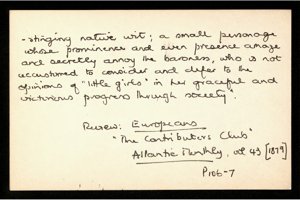 - stinging native wit; a small personage
whose prominence and even presence amaze
and secretly annoy the baroness, who is not
accustomed to consider and defer to the
opinions of "little girls" in her graceful and
victorious progress through society.
Review: Europeans
"The Contributors Club"
Atlantic Monthly, vol 43 [1879]
P106-7